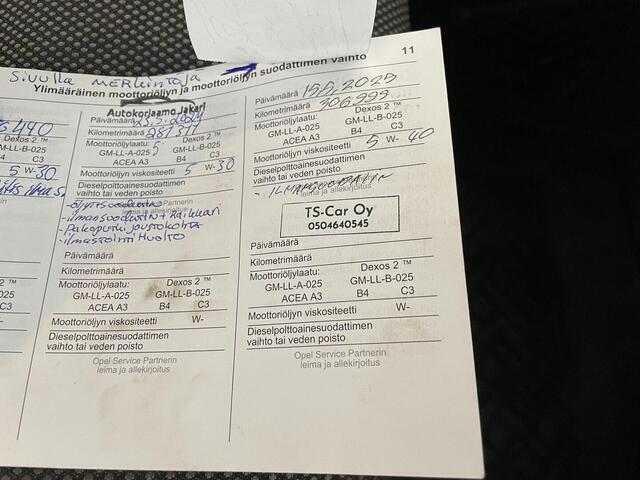 11
SiVULLA MERKINTÖJÄ
Ylimääräinen moottoriöljyn ja moottoriöljyn suodattimen vaihto
440
Dexos 2 ™
GM-LL-B-025
C3
5 W-30
Autokorjaamo Jakari
Päivämäärä 23.5.2024
Kilometrimäärä 281311
Moottoriöljylaatu: 5 Dexos 2 ™
GM-LL-A-025 GM-LL-B-025
ACEA A3 B4 C3
Moottoriöljyn viskositeetti 5 W-30
Dieselpolttoainesuodattimen
vaihto tai veden poisto
leima ja allekirjoitus
- ilmansuodatin + Raikkari
- Pakoputki joustokohta
- ilmastointi Huolto
Päivämäärä
Kilometrimäärä
Moottoriöljylaatu: Dexos 2 ™
GM-LL-A-025 GM-LL-B-025
ACEA A3 B4 C3
Moottoriöljyn viskositeetti W-
Dieselpolttoainesuodattimen
vaihto tai veden poisto
Opel Service Partnerin
leima ja allekirjoitus
Päivämäärä 15.5.2025
Kilometrimäärä 306.999
Moottoriöljylaatu: Dexos 2 ™
GM-LL-A-025 GM-LL-B-025
ACEA A3 B4 C3
Moottoriöljyn viskositeetti 5 W- 40
Dieselpolttoainesuodattimen
vaihto tai veden poisto
- ILMANSUODATIN
leima ja allekirjoitus
TS-Car Oy
0504640545
Päivämäärä
Kilometrimäärä
Moottoriöljylaatu: Dexos 2 ™
GM-LL-A-025 GM-LL-B-025
ACEA A3 B4 C3
Moottoriöljyn viskositeetti W-
Dieselpolttoainesuodattimen
vaihto tai veden poisto
Opel Service Partnerin
leima ja allekirjoitus
025
C3